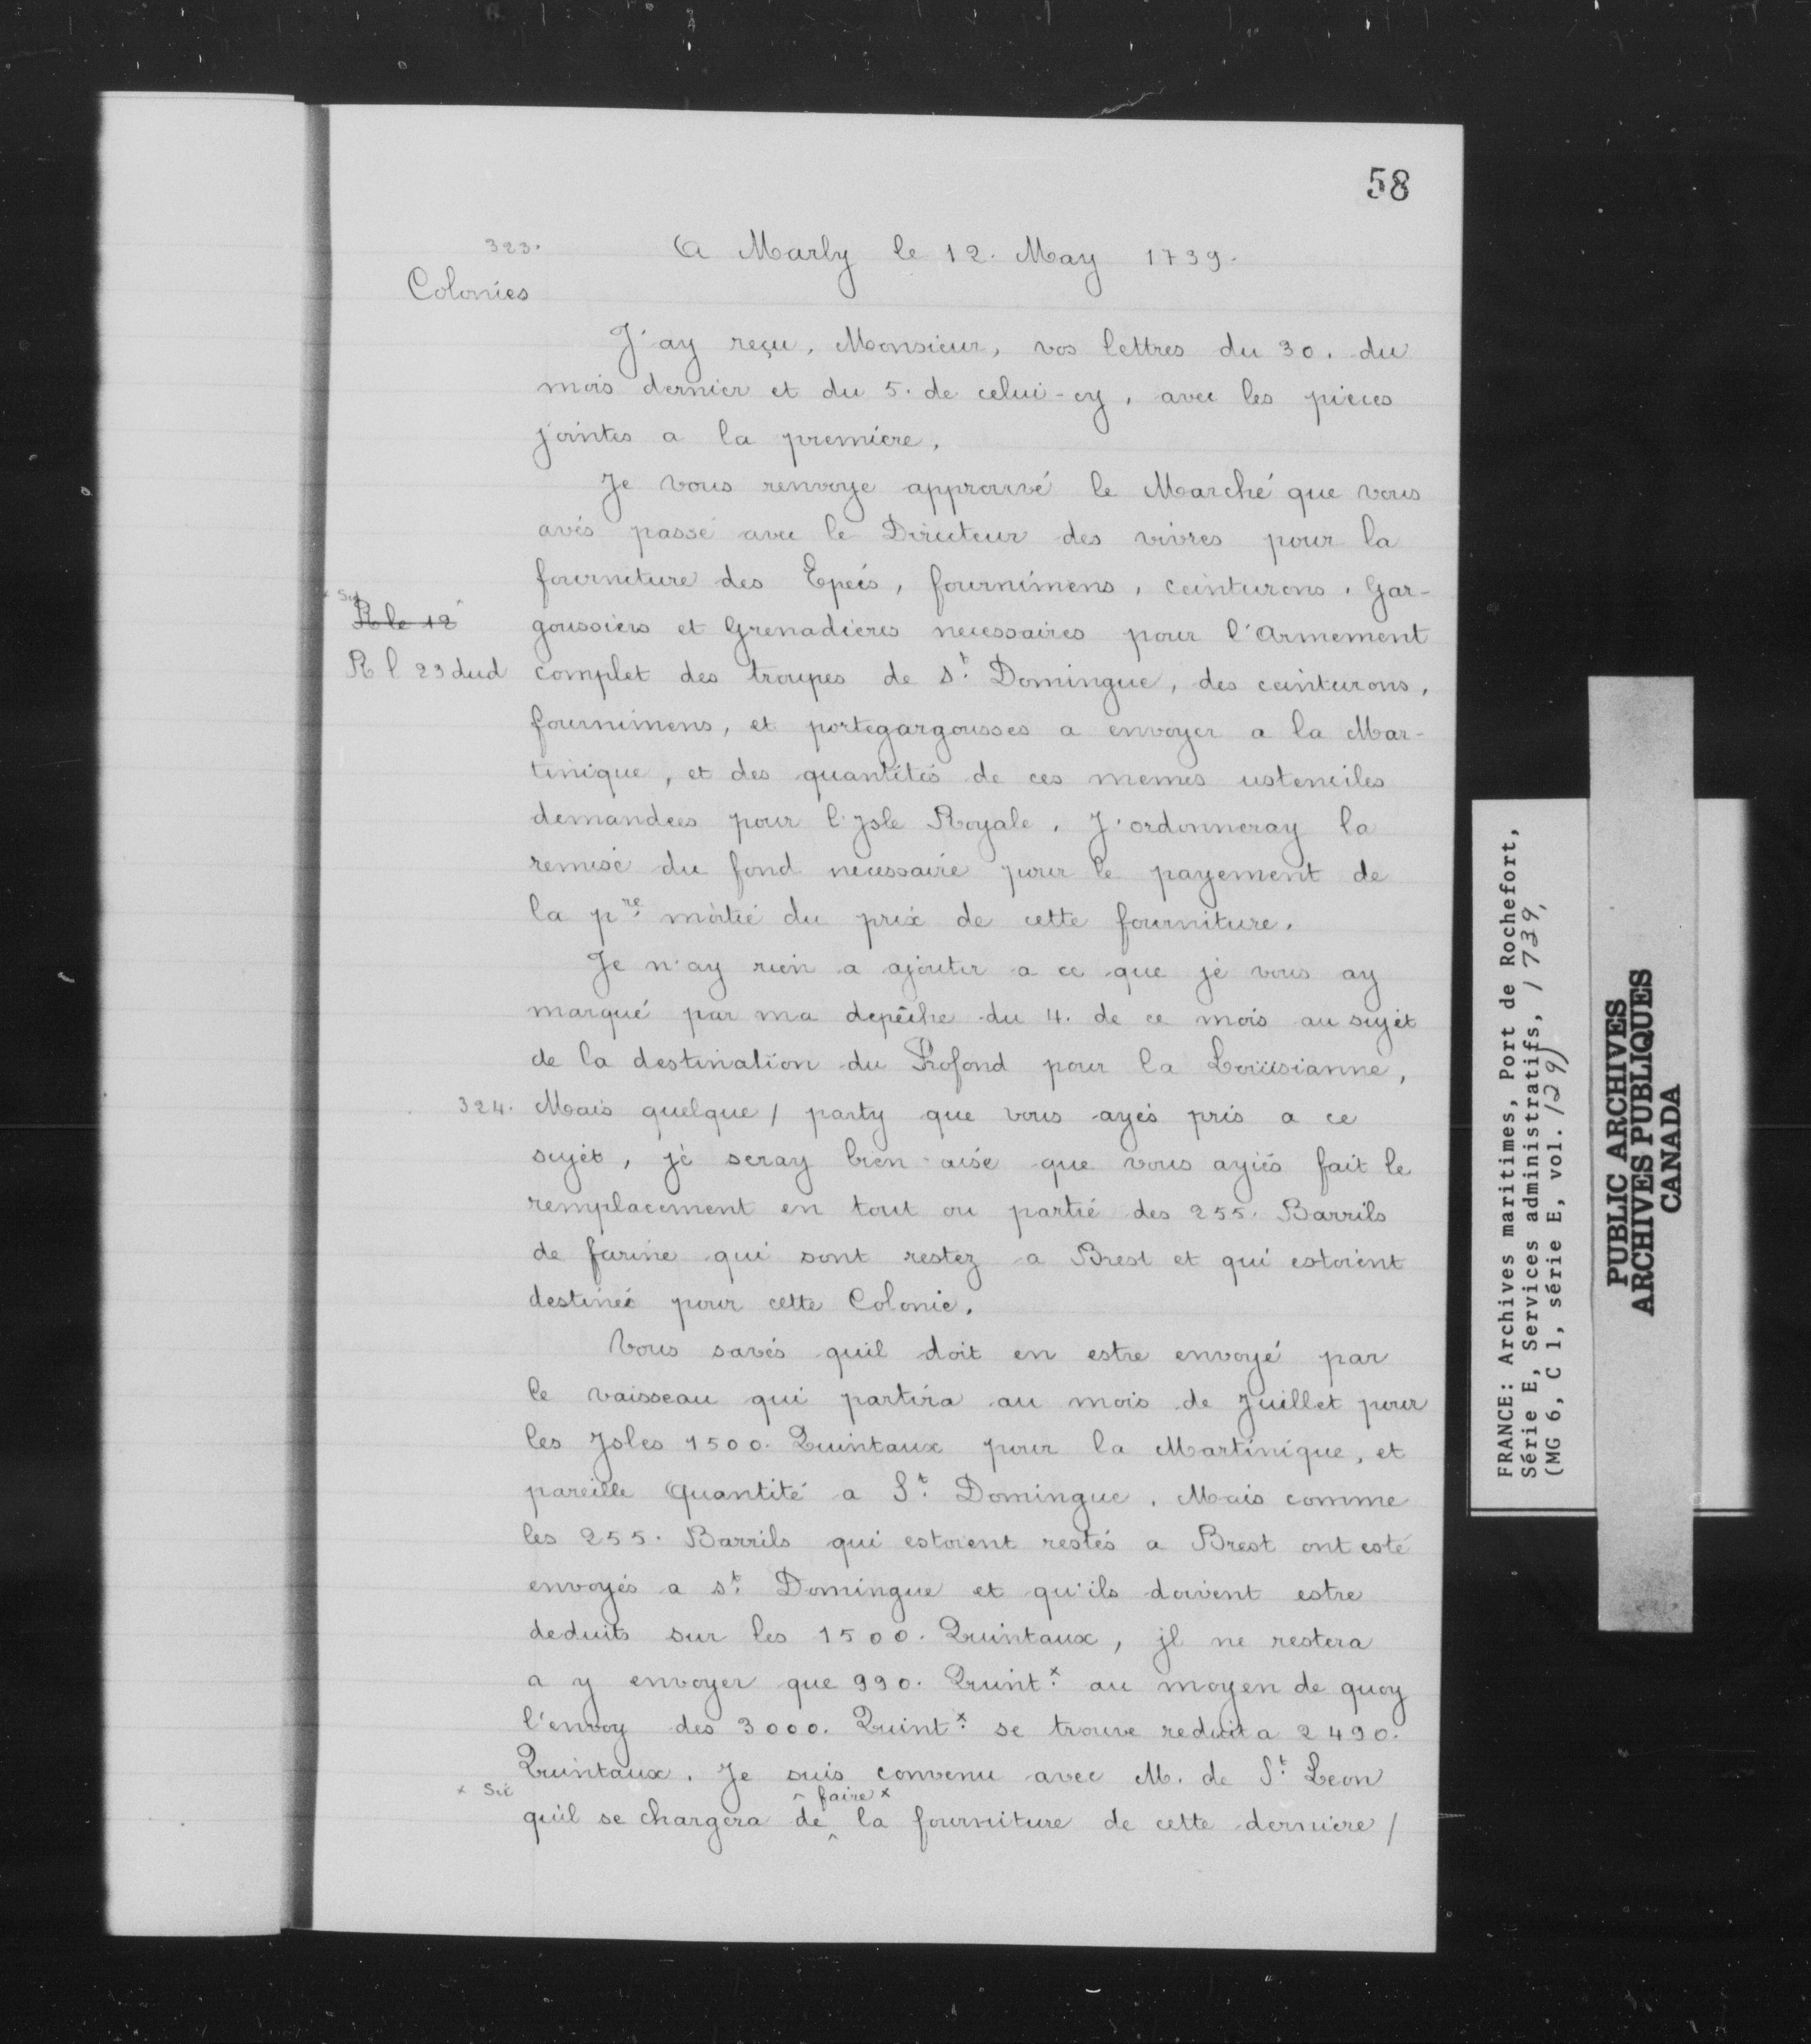 58
323.
A Marly le 12. May 1739.
Colonies
J'ay reçu, Monsieur, vos lettres du 30. du
mois dernier et du 5. de celui-cy, avec les pieces
jointes a la premiere.
Je vous renvoye approuvé le Marché que vous
avés passé avec le Directeur des vivres pour la
fourniture des Epeés, fournimens, ceinturons, Gar-
goussiers et Grenadieres necessaires pour l'Armement
x Sic
R le 12
R l 23 dud
complet des troupes de St. Domingue, des ceinturons,
fournimens, et portegargousses a envoyer a la Mar-
tinique, et des quantités de ces memes ustenciles
demandees pour l'Isle Royale. J'ordonneray la
remise du fond necessaire pour le payement de
la pre. moitié du prix de cette fourniture.
Je n'ay rien a ajouter a ce que je vous ay
marqué par ma depêche du 4. de ce mois au sujet
de la destination du Profond pour la Loüisianne,
324. Mais quelque / party que vous ayés pris a ce
sujet, je seray bien aise que vous ayiés fait le
remplacement en tout ou partie des 255. Barrils
de farine qui sont restez a Brest et qui estoient
destinés pour cette Colonie.
Vous savés quil doit en estre envoyé par
le vaisseau qui partira au mois de Juillet pour
les Isles 1500. Quintaux pour la Martinique, et
pareille Quantité a St. Domingue. Mais comme
les 255. Barrils qui estoient restés a Brest ont esté
envoyés a st. Domingue et qu'ils doivent estre
deduits sur les 1500. Quintaux, jl ne restera
a y envoyer que 990. Quintx. au moyen de quoy
l'envoy des 3000. Quintx. se trouve reduit a 2490.
Quintaux. Je suis convenu avec M. de St. Leon
x Sic
faire x
qu'il se chargera de la fourniture de cette derniere /
FRANCE: Archives maritimes, Port de Rochefort,
Série E, Services administratifs, 1739,
(MG 6, C 1, série E, vol. 129)
PUBLIC ARCHIVES
ARCHIVES PUBLIQUES
CANADA